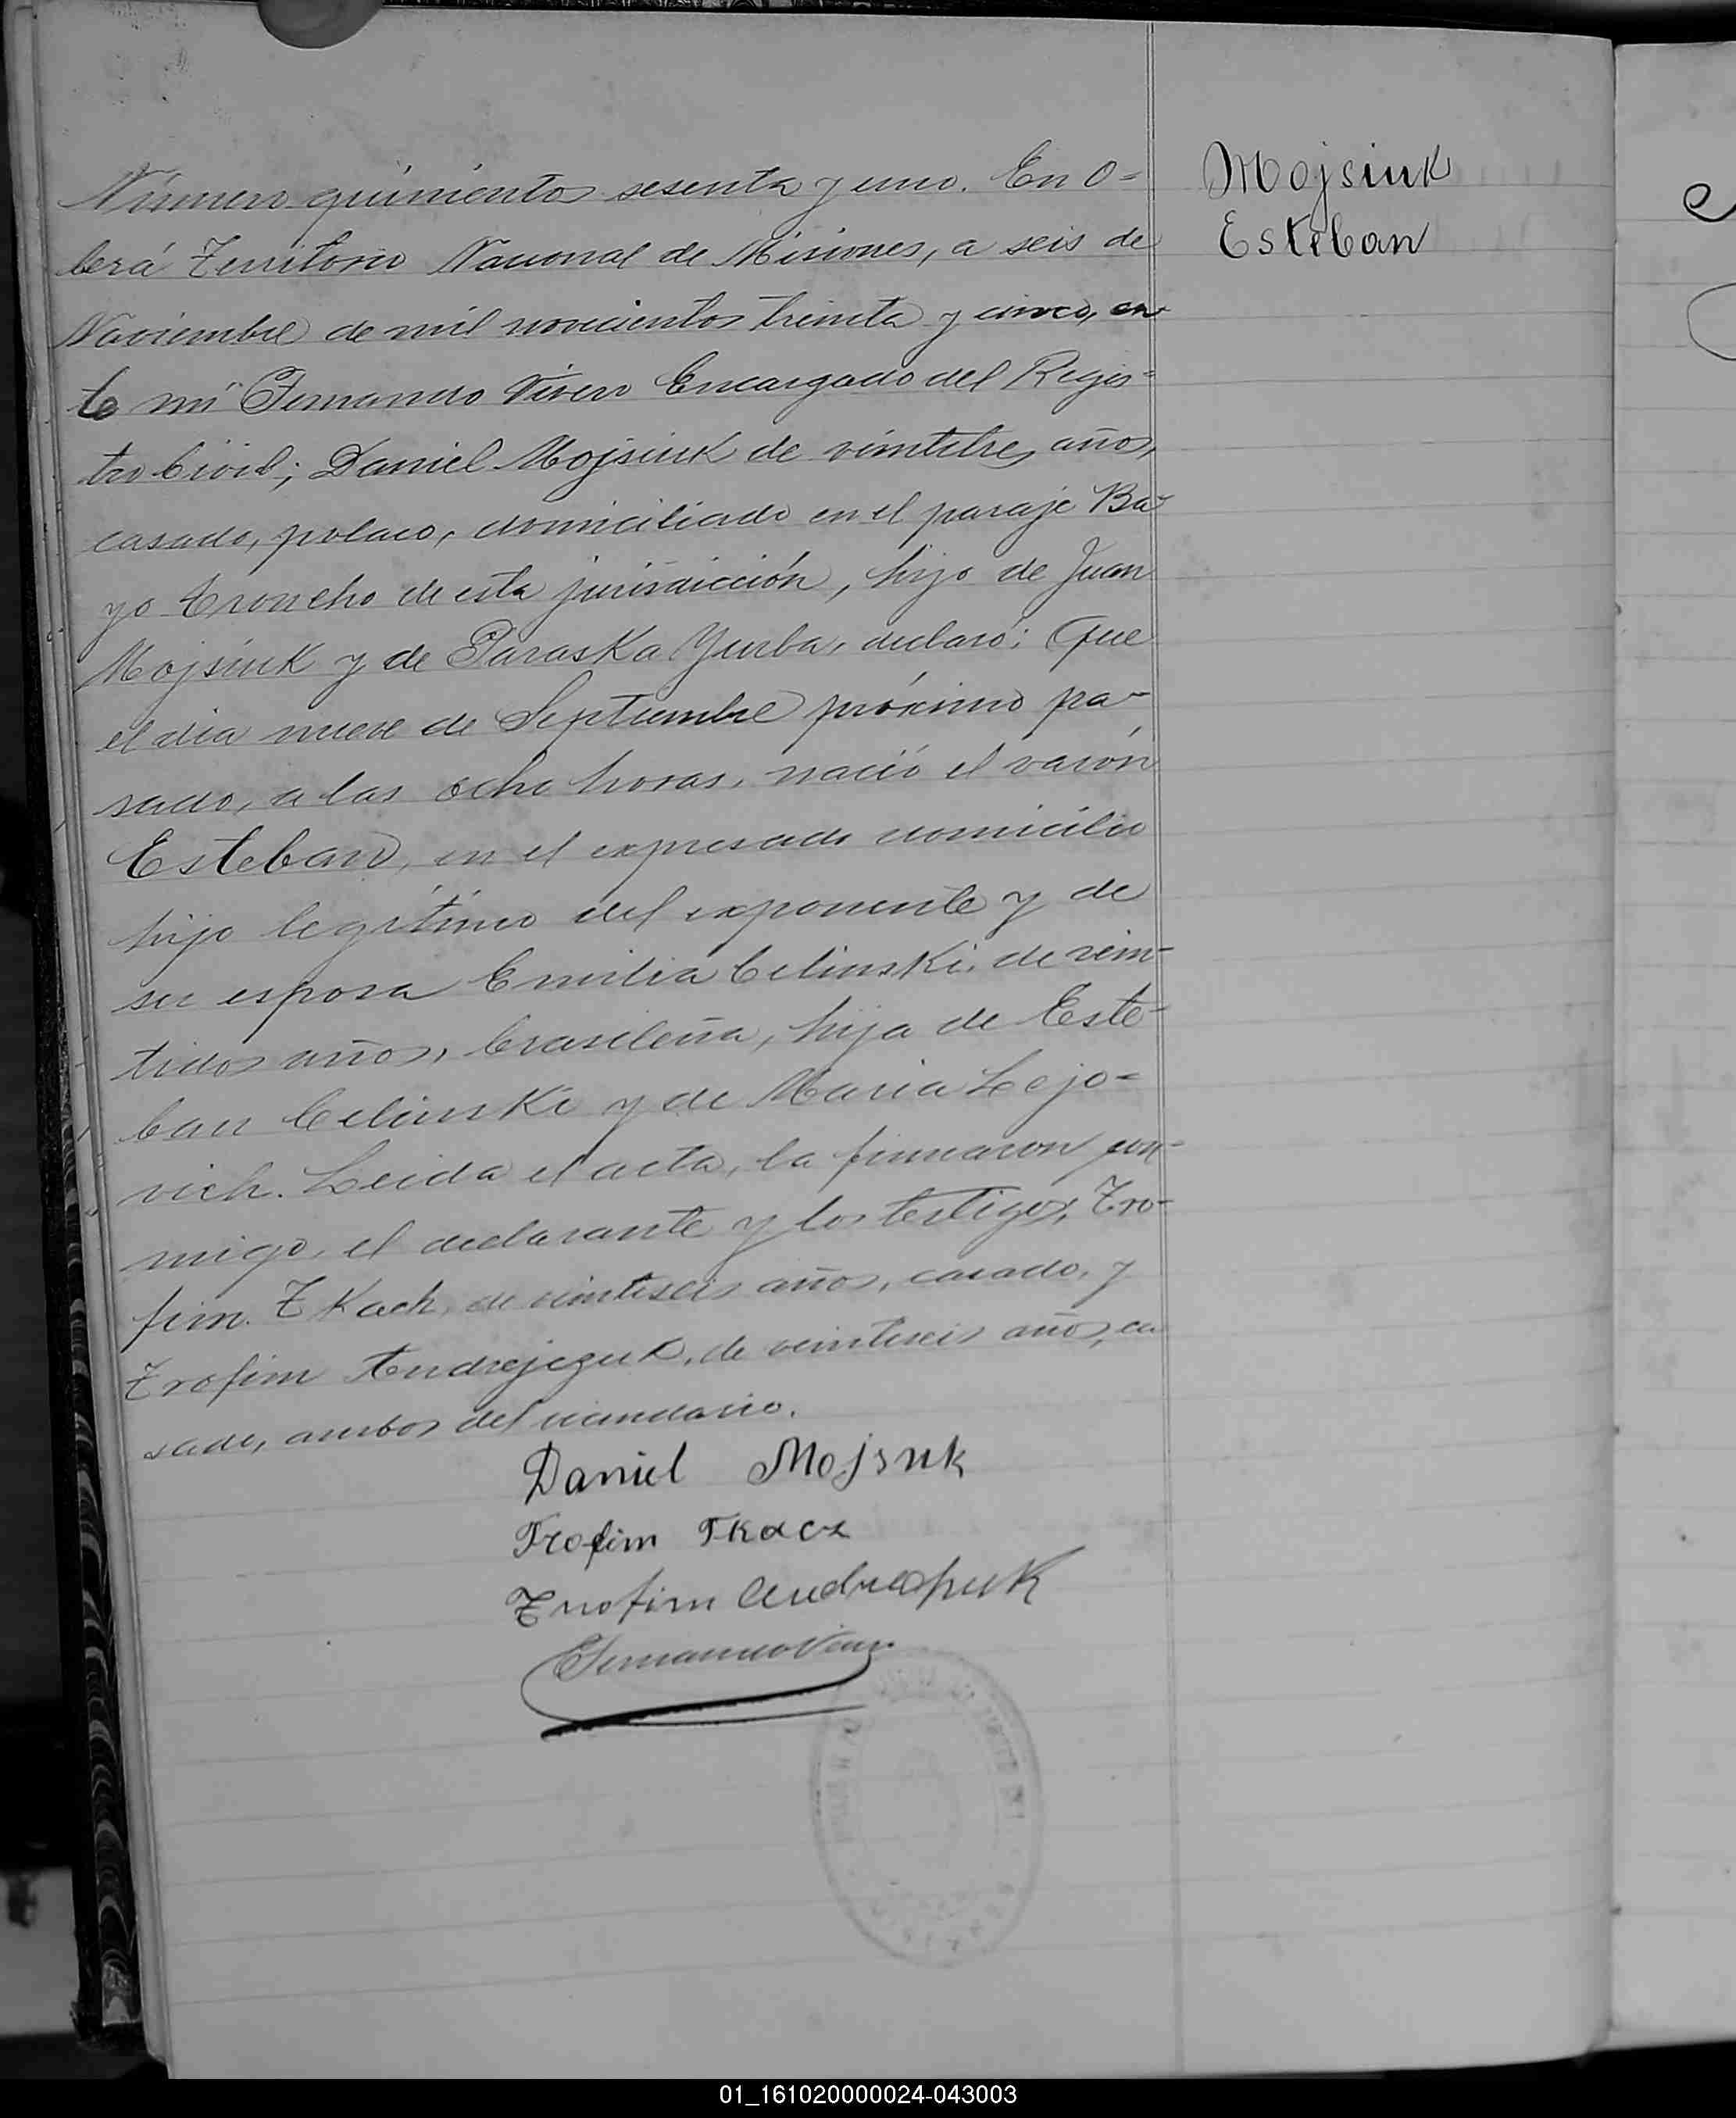 Número quinientos sesenta y uno. En O=
berá Territorio Nacional de Misiones, a seis de
Noviembre de mil novecientos treinta y cinco, an-
te mi Fernando Vivero Encargado del Regis=
tro Civil; Daniel Mojsiuk de veintitres años,
casado, polaco, domiciliado en el paraje Ba-
yo troncho de esta jurisdicción, hijo de Juan
Mojsiuk y de Paraska Yurba, declaró: Que
el dia nueve de Septiembre próximo pa-
sado, a las ocho horas, nació el varón
Esteban, en el expresado domicilio
hijo legítimo del exponente y de
su esposa Emilia Celinski, de vein-
tidos años, brasileña, hija de Este-
ban Celinski y de Maria Lejo=
vich. Leida el acta, la firmaron con-
migo, el declarante y los testigos, Tro-
fim Tkach, de veintiseis años, casado, y
Trofim Andrejczuk, de veintiseis años, ca
sado, ambos del vecindario.
Daniel Mojsuk
Trofim Tkacz
Trofim
Fernando
Mojsiuk
Esteban
01_161020000024-043003